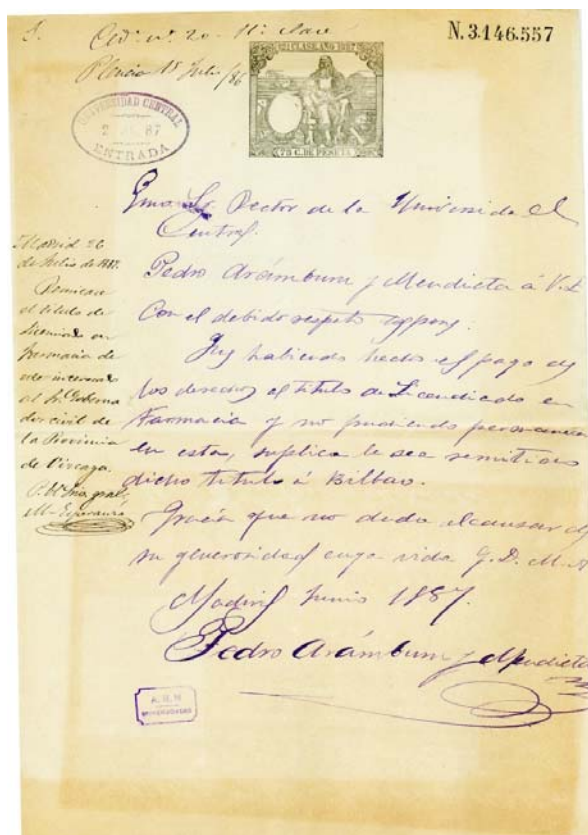 N. 3.146.557
Plencia 15 Julio /86
12ª CLASE. AÑO 1887
75 C. DE PESETA
UNIVERSIDAD CENTRAL
87
ENTRADA
Rector de la Universidad
Central.
Pedro Arámburu y Mendieta á V.E.
Con el debido respeto expone:
Que habiendo hecho el pago de
los derechos al titulo de Licenciado en
Farmacia y no pudiendo permanecer
en esta, suplica le sea remitido
dicho titulo á Bilbao.
Gracia que no duda alcanzar de
su generosidad cuya vida G. D. M. A
Madrid Junio 1887.
Pedro Arámburu y Mendieta
Madrid 26
de Julio de 1887.
Remítase
el titulo de
Licenciado en
Farmacia de
este interesado
al Sr. Goberna
dor civil de
la Provincia
de Vizcaya.
A. H. N.
UNIVERSIDADES